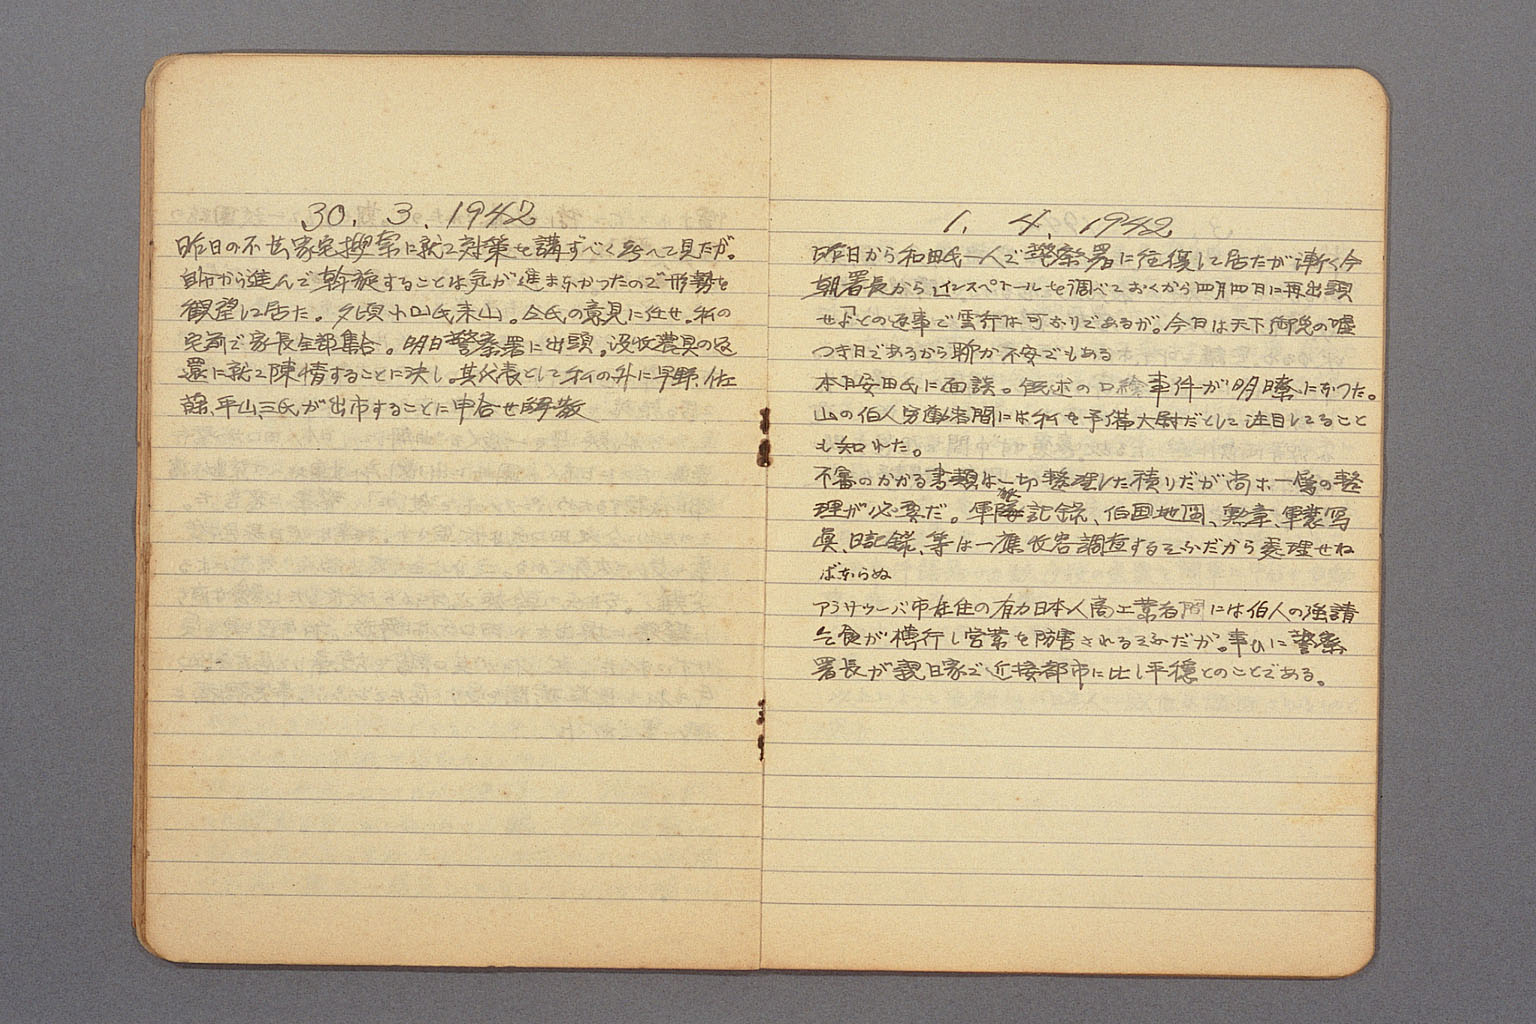 30. 3. 1942
昨日の不法家宅捜索に就て対策を講ずべく考へて見たが。
自ら進んで斡旋することは気が進まなかったので形勢を
観望して居た。夕頃小口氏来山。仝氏の意見に任せ。私の
宅前で家長全部集合。明日警察署に出頭。没收農具の返
還に就て陳情することに決し。其代表として私の外に早野、佐
藤、平山三氏が出市することに申合せ解散
1. 4. 1942
昨日から和田氏一人で警察署に往復して居たが漸く今
朝署長から「インスペトールを調べておくから四月四日に再出頭
せよ」との返事で雲行は可なりであるが。今日は天下御免の嘘
つき日であるから聊か不安でもある
本日安田氏に面談。既述の口絵事件が明瞭になつた。
山の伯人労働者間には私を予備大尉だとして注目してること
も知れた。
不審のかかる書類は一切整理した積りだが尚ホ一層の整
理が必要だ。軍隊記録、伯国地図、勲章、軍装写
真、日記録、等は一應收容調査するそふだから處理せね
ばならぬ
アラサツーバ市在住の有力日本人商工業者間には伯人の強請
乞食が横行し営業を防害されるそふだが。幸ひに警察
署長が親日家で近接都市に比し平穏とのことである。